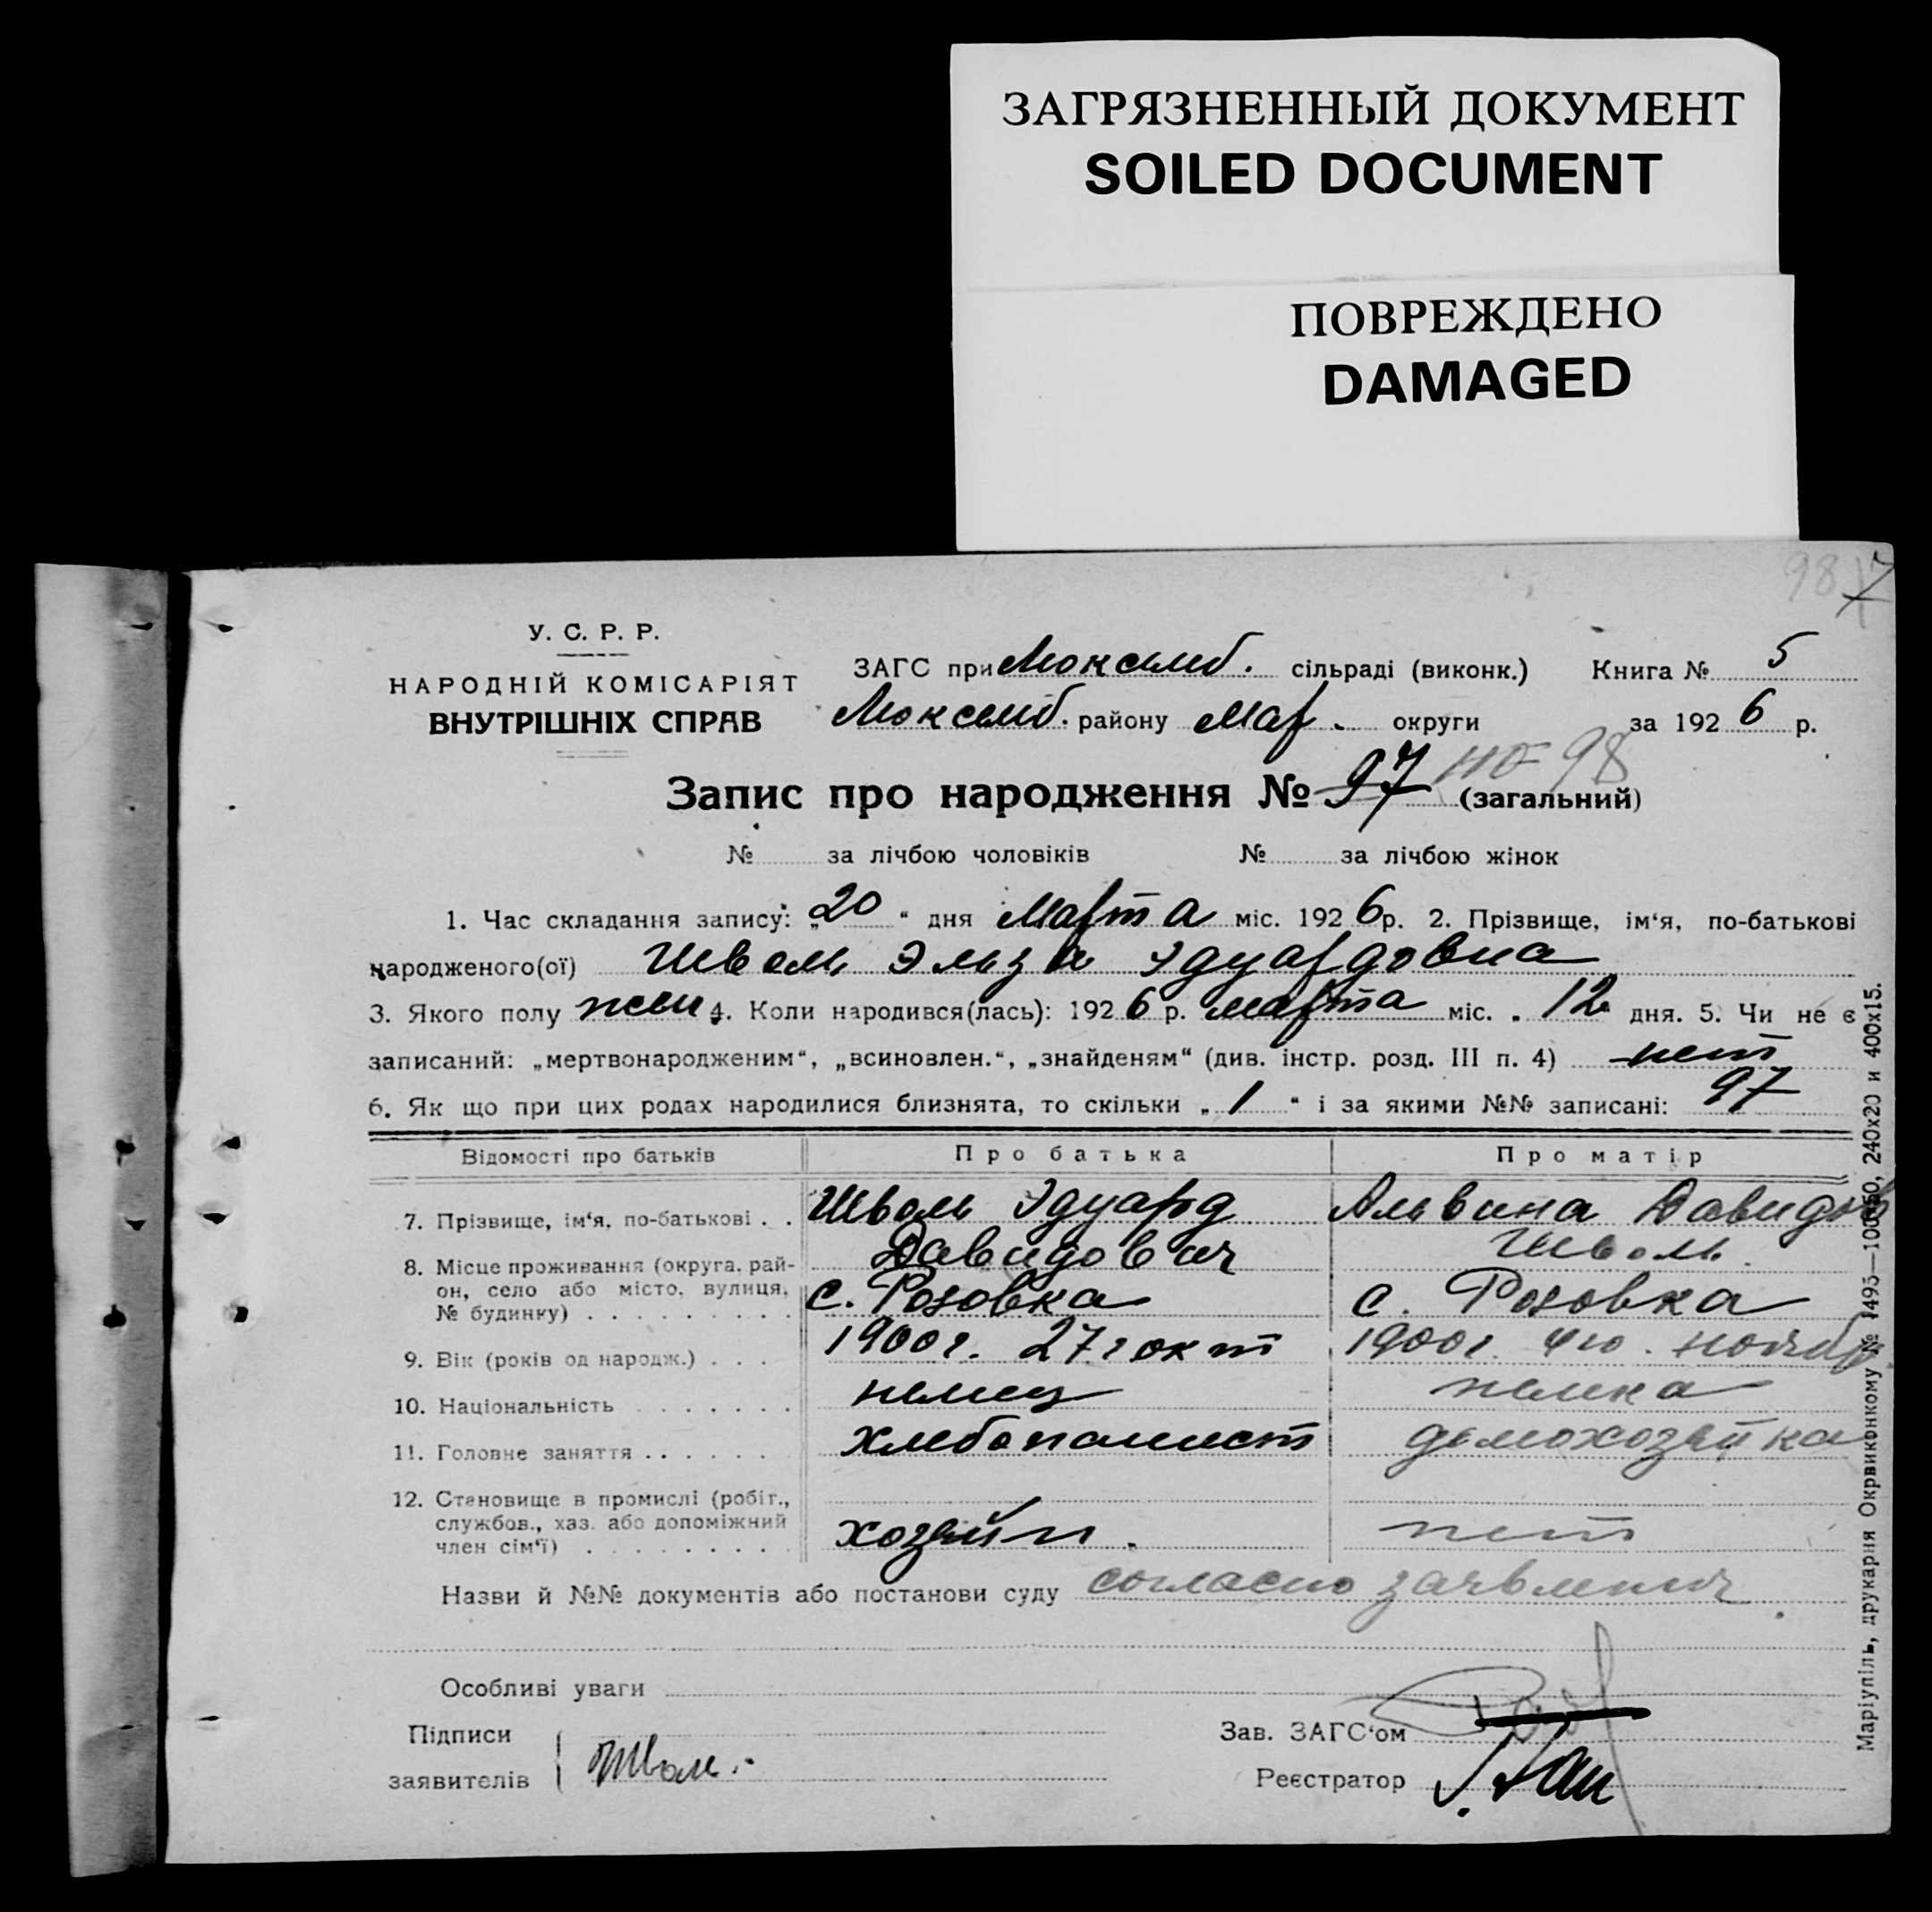 ЗАГРЯЗНЕННЫЙ ДОКУМЕНТ
SOILED DOCUMENT
ПОВРЕЖДЕНО
DAMAGED
98 7
У. С. Р. Р.
НАРОДНІЙ КОМІСАРІЯТ
ВНУТРІШНІХ СПРАВ
ЗАГС при Люксемб. сільраді (виконк.) Книга № 5
Люксемб. району Мар. округи за 1926 р.
Запис про народження № 97 98 (загальний)
№ за лічбою чоловіків № за лічбою жінок
1. Час складання запису: „20“ дня Марта міс. 1926 р. 2. Прізвище, ім‘я, по-батькові
народженого(ої) Шволь Эльза Эдуардовна
3. Якого полу жен 4. Коли народився(лась): 1926 р. марта міс. „12 дня. 5. Чи не є
записаний: „мертвонародженим“, „всиновлен.“, „знайденям“ (див. інстр. розд. III п. 4) нет
6. Як що при цих родах народилися близнята, то скільки „1“ і за якими №№ записані: 97
Відомості про батьків Про батька Про матір
7. Прізвище, ім‘я, по-батькові . . Шволь Эдуард Давидович Альвина Давидов Шволь
8. Місце проживання (округа, рай-
он, село або місто, вулиця,
№ будинку) . . . . . . . . . с. Розовка с. Розовка
9. Вік (років од народж.) . . . 1900 г. 27 г окт 1900 г. ноябр
10. Національність . . . . . . . немец немка
11. Головне заняття . . . . . . хлебопашест домохозяйка
12. Становище в промислі (робіт.,
службов., хаз. або допоміжний
член сім‘ї) . . . . . . . . . хозяйн. нет
Назви й №№ документів або постанови суду согласно заявления
Особливі уваги
Підписи
заявителів Шволь
Зав. ЗАГС‘ом
Реєстратор
Маріупіль, друкарня Окрвиконкому № 1495—100х50, 240х20 и 400х15.